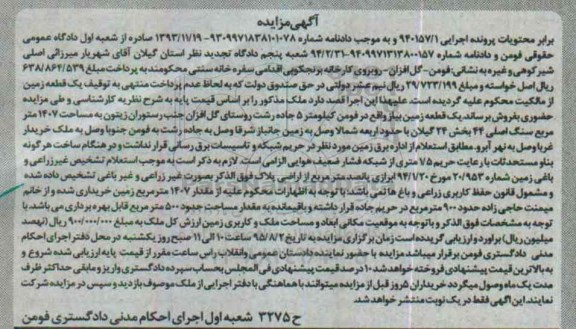 آگهی مزایده
برابر محتویات پرونده اجرایی ۹۴۰۱۵۷/۱ و به موجب دادنامه شماره ۹۳۰۹۹۷۱۸۳۸۱۰۱۰۷۸-۱۳۹۳/۱۱/۱۹ صادره از شعبه اول دادگاه عمومی
حقوقی فومن و دادنامه شماره ۹۴۰۹۹۷۱۳۱۳۸۰۰۱۵۷-۹۴/۲/۳۱ شعبه پنجم دادگاه تجدید نظر استان گیلان آقای شهریار میرزائی اصلی
شیرکوهی و غیره به نشانی: فومن-گل افزان-روبروی کارخانه برنجکوبی اقدامی سفره خانه سنتی محکومند به پرداخت مبلغ ۶۳۸/۸۶۴/۵۳۹
ریال اصل خواسته و مبلغ ۲۹/۷۲۳/۱۹۹ ریال نیم عشر دولتی در حق صندوق دولت که به لحاظ عدم پرداخت منتهی به توقیف یک قطعه زمین
از مالکیت محکوم علیه گردیده است. علیهذا این اجرا قصد دارد ملک مذکور را بر اساس قیمت پایه به شرح نظریه کارشناسی و طی مزایده
حضوری بفروش برساند. یک قطعه زمین بیاز واقع در فومن کیلومتر ۵ جاده رشت روستای گل افزان جنب رستوران زیتون به مساحت ۱۴۰۷ متر
مربع سنگ اصلی ۴۴ بخش ۲۴ گیلان با حدود اربعه شمالا وصل به زمین جانباز شرقا وصل به جاده رشت به فومن جنوبا وصل به ملک خریدار
غربا وصل به نهر آبرو مطابق استعلام از اداره برق زمین مورد نظر در حریم شبکه و تاسیسات برق رسانی قرار نداشت و در هنگام ساخت هر گونه
بناو مستحدثات با رعایت حریم ۷۵ متری از شبکه فشار ضعیف هوایی الزامی است. لازم به ذکر است به موجب استعلام تشخیص غیرزراعی و
باغی زمین شماره ۲۰۹۵۳ مورخ ۹۴/۱/۲۰ ابرازی پانصد متر مربع از اراضی پلاک فوق الذکر بصورت غیر زراعی و غیر باغی تشخیص داده شده
و مشمول قانون حفظ کاربری زراعی و باغ ها نمی باشد با توجه به اظهارات محکوم علیه از مقدار ۱۴۰۷ مترمربع زمین خریداری شده و از خانم
میمنت حاجی زاده حدود ۹۰۰ مترمربع در حریم جاده قرار داشته و باقیمانده به مقدار مساحت حدود ۵۰۰ متر مربع قابل بهره برداری می باشد. با
توجه به مشخصات فوق الذکر و باتوجه به موقعیت مکانی ابعاد و مساحت ملک و کاربری زمین ارزش کل ملک به مبلغ ۹۰۰/۰۰۰/۰۰۰ ریال (نهصد
میلیون ریال) براورد و ارزیابی گردیده است زمان برگزاری مزایده به تاریخ ۹۵/۸/۲ ساعت ۱۰ الی ۱۱ صبح روز یکشنبه در محل دفتر اجرای احکام
مدنی دادگستری فومن برقرار میباشد مزایده با حضور نماینده دادستان عمومی و انقلاب راس ساعت مقرر از قیمت پایه ارزیابی شده شروع و
به بالاترین قیمت پیشنهادی فروخته خواهد شد ۱۰ درصد قیمت پیشنهادی فی المجلس بحساب سپرده دادگستری واریز و مابقی حداکثر ظرف
مدت یک ماه وصول میگردد خریداران ۵ روز قبل از مزایده میتوانند با هماهنگی با دفتر اجرایی از ملک موصوف بازدید و سپس در مزایده شرکت
نمایند. این آگهی فقط در یک نوبت منتشر خواهد شد.
ح ۳۲۷۵ شعبه اول اجرای احکام مدنی دادگستری فومن